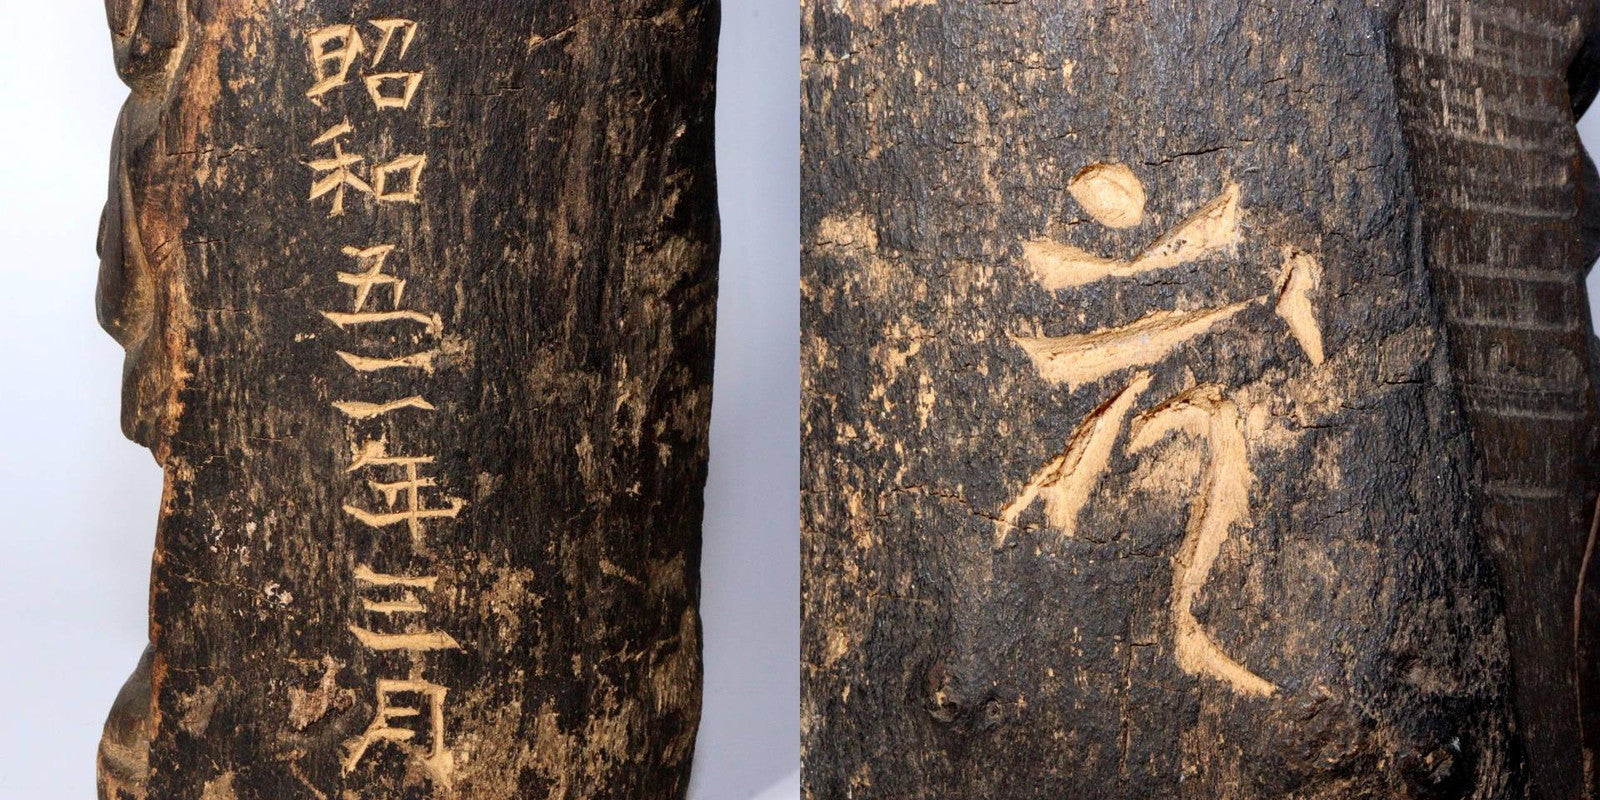 昭和五二年三月
𑖮𑖯𑖼